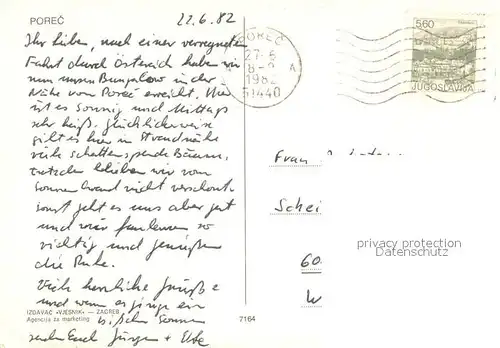 POREČ
22.6.82
Ihr Lieben, nach einer verregneten
Fahrt durch Österreich haben wir
nun unseren Bungalow in der
Nähe von Poreč erreicht. Hier
ist es sonnig und mittags
sehr heiß. Glücklicherweise
gibt es hier in Strandnähe
viele schattenspendende Bäume,
trotzdem blieben wir vom
Sonnenbrand nicht verschont.
Sonst geht es uns aber gut
und wir faulenzen so
richtig und genießen
die Ruhe.
Viele herzliche Grüße
und wenn es ginge ein
bißchen Sonne
senden Euch Jürgen + Elke
IZDAVAČ »VJESNIK« — ZAGREB
Agencija za marketing
7164
POREČ
1982
A
51440
560
JUGOSLAVIJA
Frau
Schei
60
W
privacy protection